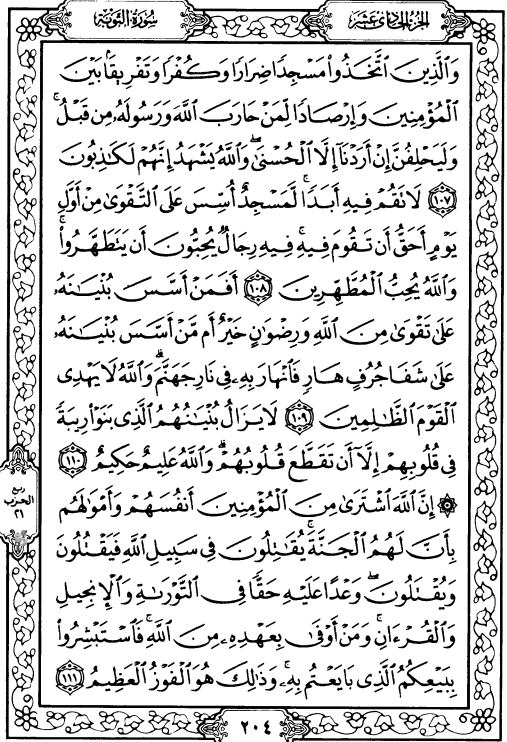 الجزء الحادي عشر
سورة التوبة
وَالَّذِينَ اتَّخَذُوا مَسْجِدًا ضِرَارًا وَكُفْرًا وَتَفْرِيقًا بَيْنَ
الْمُؤْمِنِينَ وَإِرْصَادًا لِّمَنْ حَارَبَ اللَّهَ وَرَسُولَهُ مِن قَبْلُ ۚ
وَلَيَحْلِفُنَّ إِنْ أَرَدْنَا إِلَّا الْحُسْنَىٰ ۖ وَاللَّهُ يَشْهَدُ إِنَّهُمْ لَكَاذِبُونَ
١٠٧ لَا تَقُمْ فِيهِ أَبَدًا ۚ لَّمَسْجِدٌ أُسِّسَ عَلَى التَّقْوَىٰ مِنْ أَوَّلِ
يَوْمٍ أَحَقُّ أَن تَقُومَ فِيهِ ۚ فِيهِ رِجَالٌ يُحِبُّونَ أَن يَتَطَهَّرُوا ۚ
وَاللَّهُ يُحِبُّ الْمُطَّهِّرِينَ ١٠٨ أَفَمَنْ أَسَّسَ بُنْيَانَهُ
عَلَىٰ تَقْوَىٰ مِنَ اللَّهِ وَرِضْوَانٍ خَيْرٌ أَم مَّنْ أَسَّسَ بُنْيَانَهُ
عَلَىٰ شَفَا جُرُفٍ هَارٍ فَانْهَارَ بِهِ فِي نَارِ جَهَنَّمَ ۗ وَاللَّهُ لَا يَهْدِي
الْقَوْمَ الظَّالِمِينَ ١٠٩ لَا يَزَالُ بُنْيَانُهُمُ الَّذِي بَنَوْا رِيبَةً
فِي قُلُوبِهِمْ إِلَّا أَن تَقَطَّعَ قُلُوبُهُمْ ۗ وَاللَّهُ عَلِيمٌ حَكِيمٌ ١١٠
۞ إِنَّ اللَّهَ اشْتَرَىٰ مِنَ الْمُؤْمِنِينَ أَنفُسَهُمْ وَأَمْوَالَهُم
بِأَنَّ لَهُمُ الْجَنَّةَ ۚ يُقَاتِلُونَ فِي سَبِيلِ اللَّهِ فَيَقْتُلُونَ
وَيُقْتَلُونَ ۖ وَعْدًا عَلَيْهِ حَقًّا فِي التَّوْرَاةِ وَالْإِنجِيلِ
وَالْقُرْآنِ ۚ وَمَنْ أَوْفَىٰ بِعَهْدِهِ مِنَ اللَّهِ ۚ فَاسْتَبْشِرُوا
بِبَيْعِكُمُ الَّذِي بَايَعْتُم بِهِ ۚ وَذَٰلِكَ هُوَ الْفَوْزُ الْعَظِيمُ ١١١
ربع
الحزب
٢١
٢٠٤